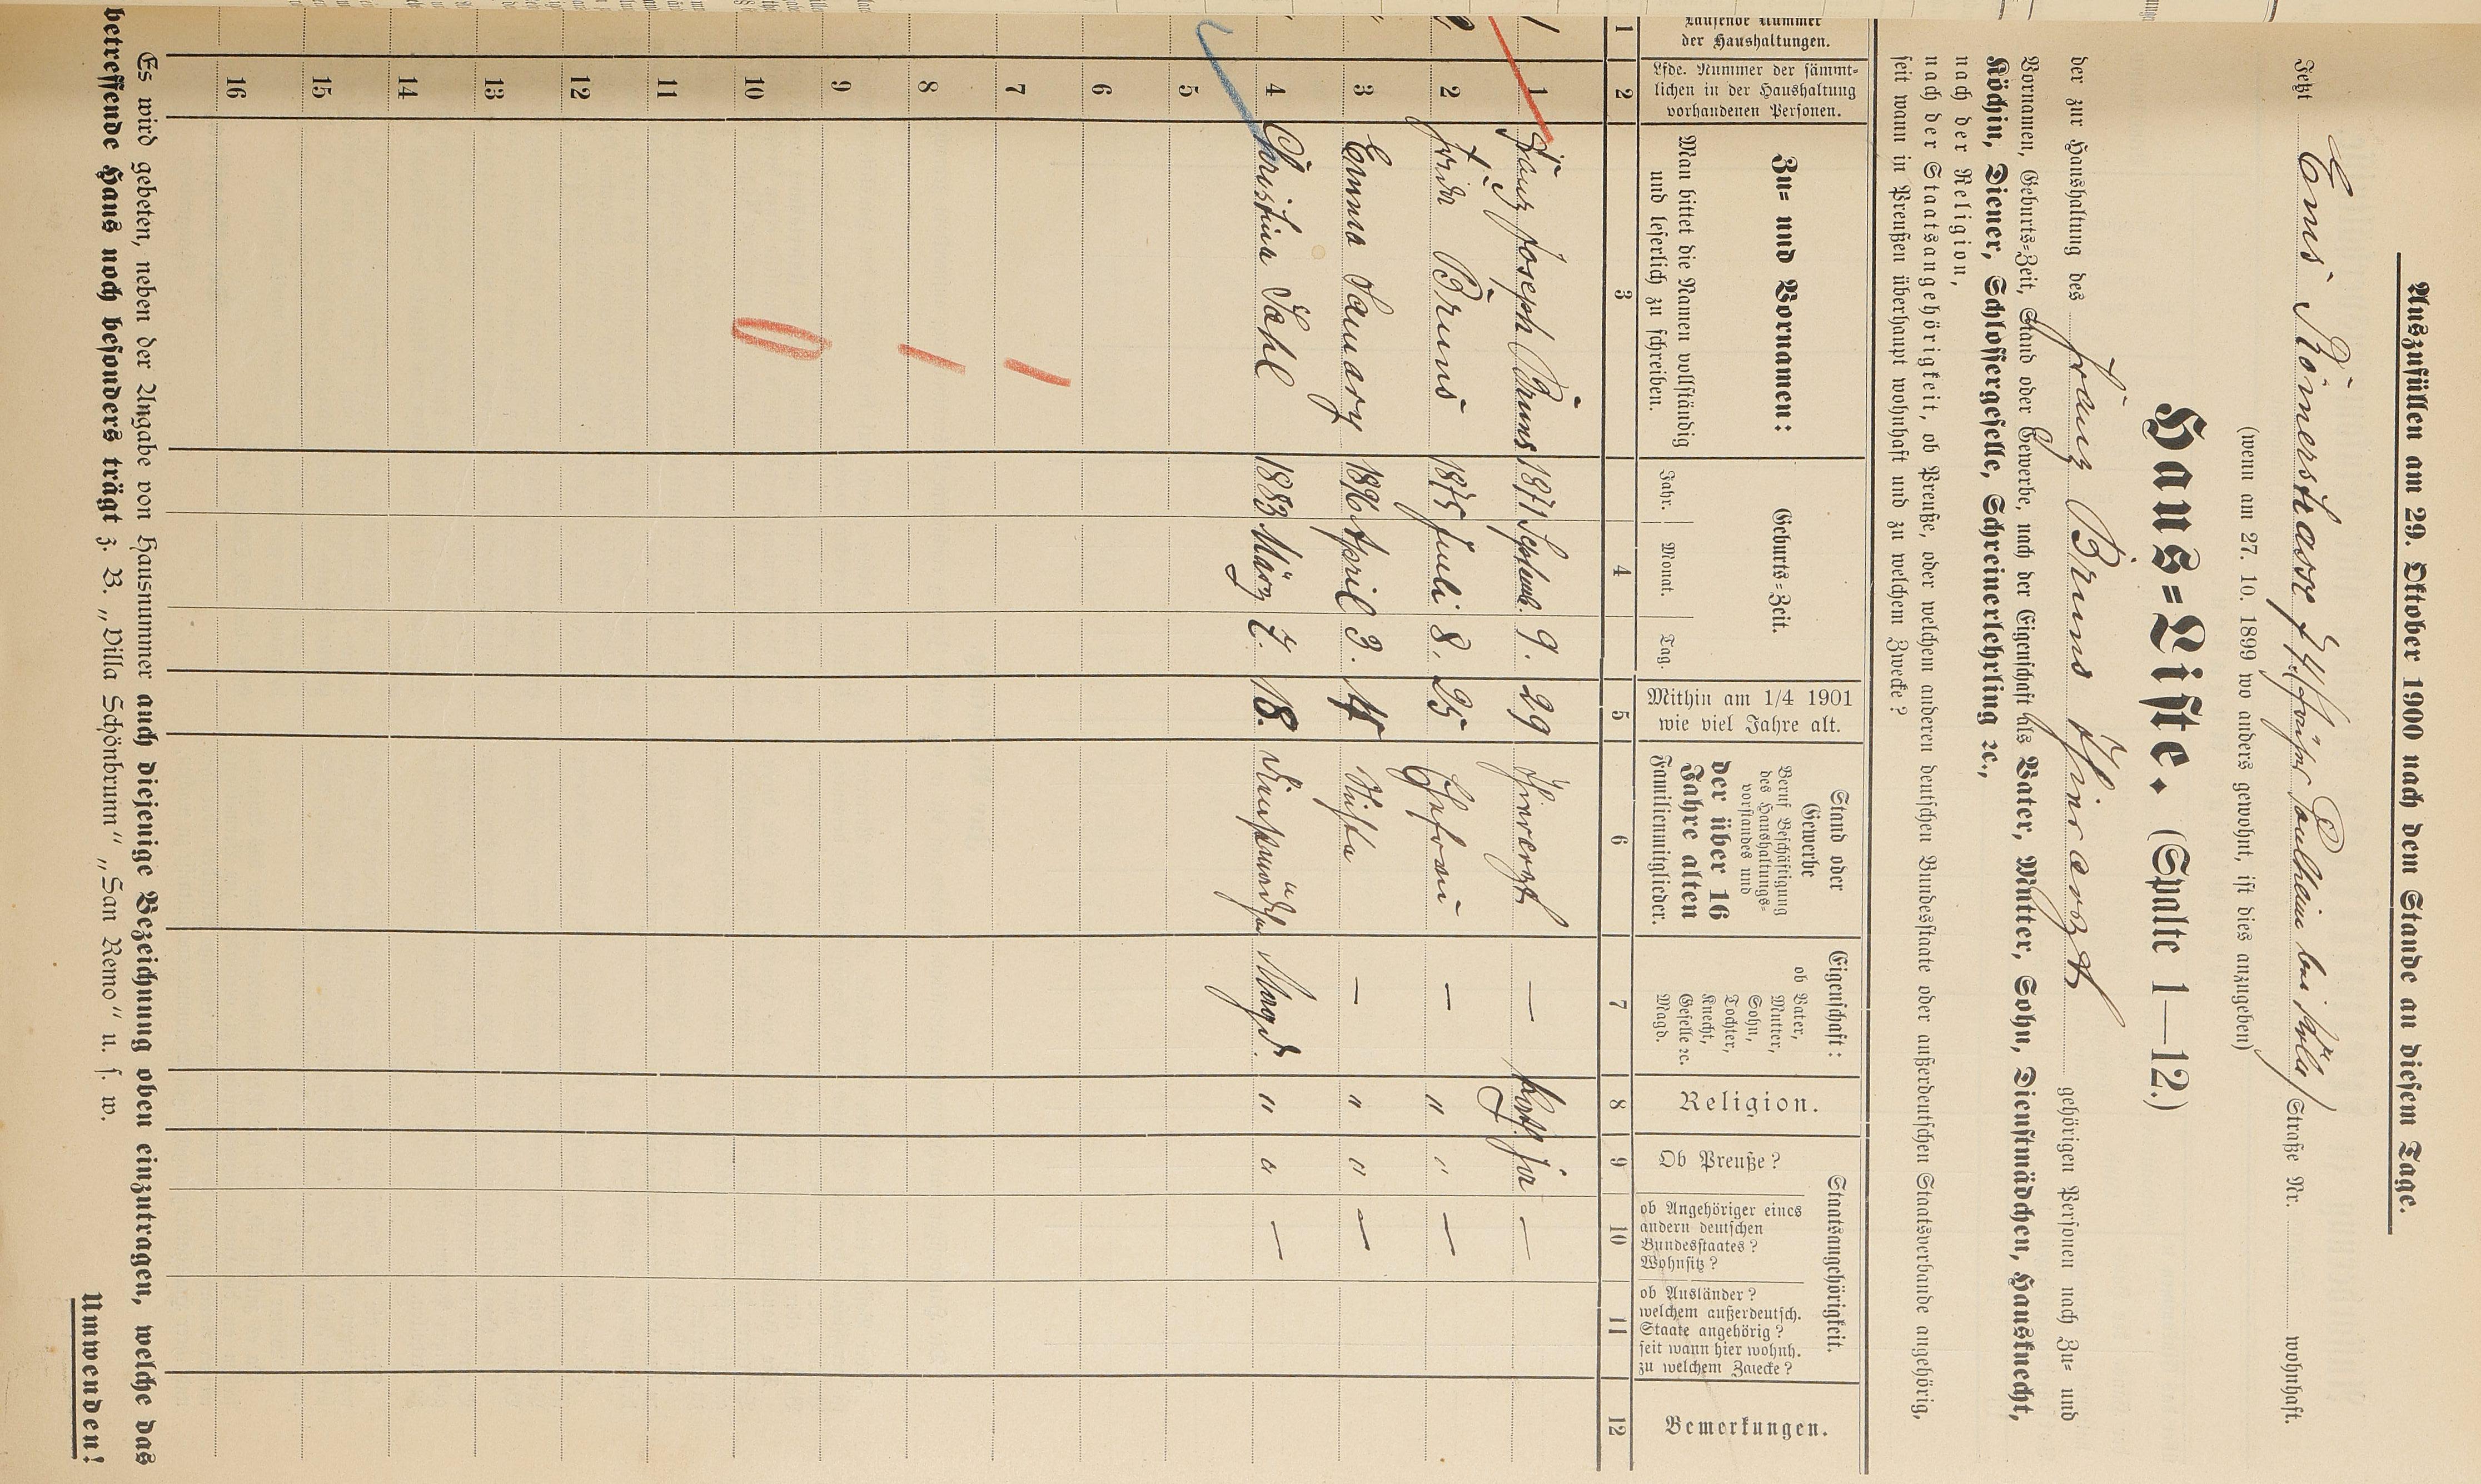 Auszufüllen am 29. Oktober 1900 nach dem Stande an diesem Tage.
Jetzt Ems Römerstrasse 7 (früher Poulheim bei Köln) Straße Nr. wohnhaft.
(wenn am 27. 10. 1899 wo anders gewohnt, ist dies anzugeben)
Haus=Liste. (Spalte 1—12.)
der zur Haushaltung des Franz Bruns Thierarzt gehörigen Personen nach Zu= und
Vornamen, Geburts=Zeit, Stand oder Gewerbe, nach der Eigenschaft als Vater, Mutter, Sohn, Dienstmädchen, Hausknecht,
Köchin, Diener, Schlossergeselle, Schreinerlehrling ꝛc.,
nach der Religion,
nach der Staatsangehörigkeit, ob Preuße, oder welchem anderen deutschen Bundesstaate oder außerdeutschen Staatsverbande angehörig,
seit wann in Preußen überhaupt wohnhaft und zu welchem Zwecke?
Laufende Nummer
der Haushaltungen.
Lfde. Nummer der sämmt=
lichen in der Haushaltung
vorhandenen Personen.
Zu= und Vornamen:
Man bittet die Namen vollständig
und leserlich zu schreiben.
Geburts=Zeit.
Jahr. Monat. Tag.
Mithin am 1/4 1901
wie viel Jahre alt.
Stand oder
Gewerbe
Beruf Beschäftigung
des Haushaltungs=
vorstandes und
der über 16
Jahre alten
Familienmitglieder.
Eigenschaft:
ob Vater,
Mutter,
Sohn,
Tochter,
Knecht,
Geselle ꝛc.
Magd.
Religion.
Staatsangehörigkeit.
Ob Preuße?
ob Angehöriger eines
andern deutschen
Bundesstaates?
Wohnsitz?
ob Ausländer?
welchem außerdeutsch.
Staate angehörig?
seit wann hier wohnh.
zu welchem Zwecke?
Bemerkungen.
1 2 3 4 5 6 7 8 9 10 11 12
1 1 Franz Joseph Bruns 1871 Septemb. 9. 29 Thierarzt — kath. ja —
2 2 Frida Bruns 1875 Juli 8. 25 Ehefrau — " " —
" 3 Emma Saurary 1896 April 3. Nichte — " " —
" 4 Christina Stahl 1883 März 7. 18. Dienstmädchen Magd. " " —
5
6
7
8
9
10
11
12
13
14
15
16
Es wird gebeten, neben der Angabe von Hausnummer auch diejenige Bezeichnung oben einzutragen, welche das
betreffende Haus noch besonders trägt z. B. „Villa Schönbrunn“ „San Remo“ u. s. w.
Umwenden!